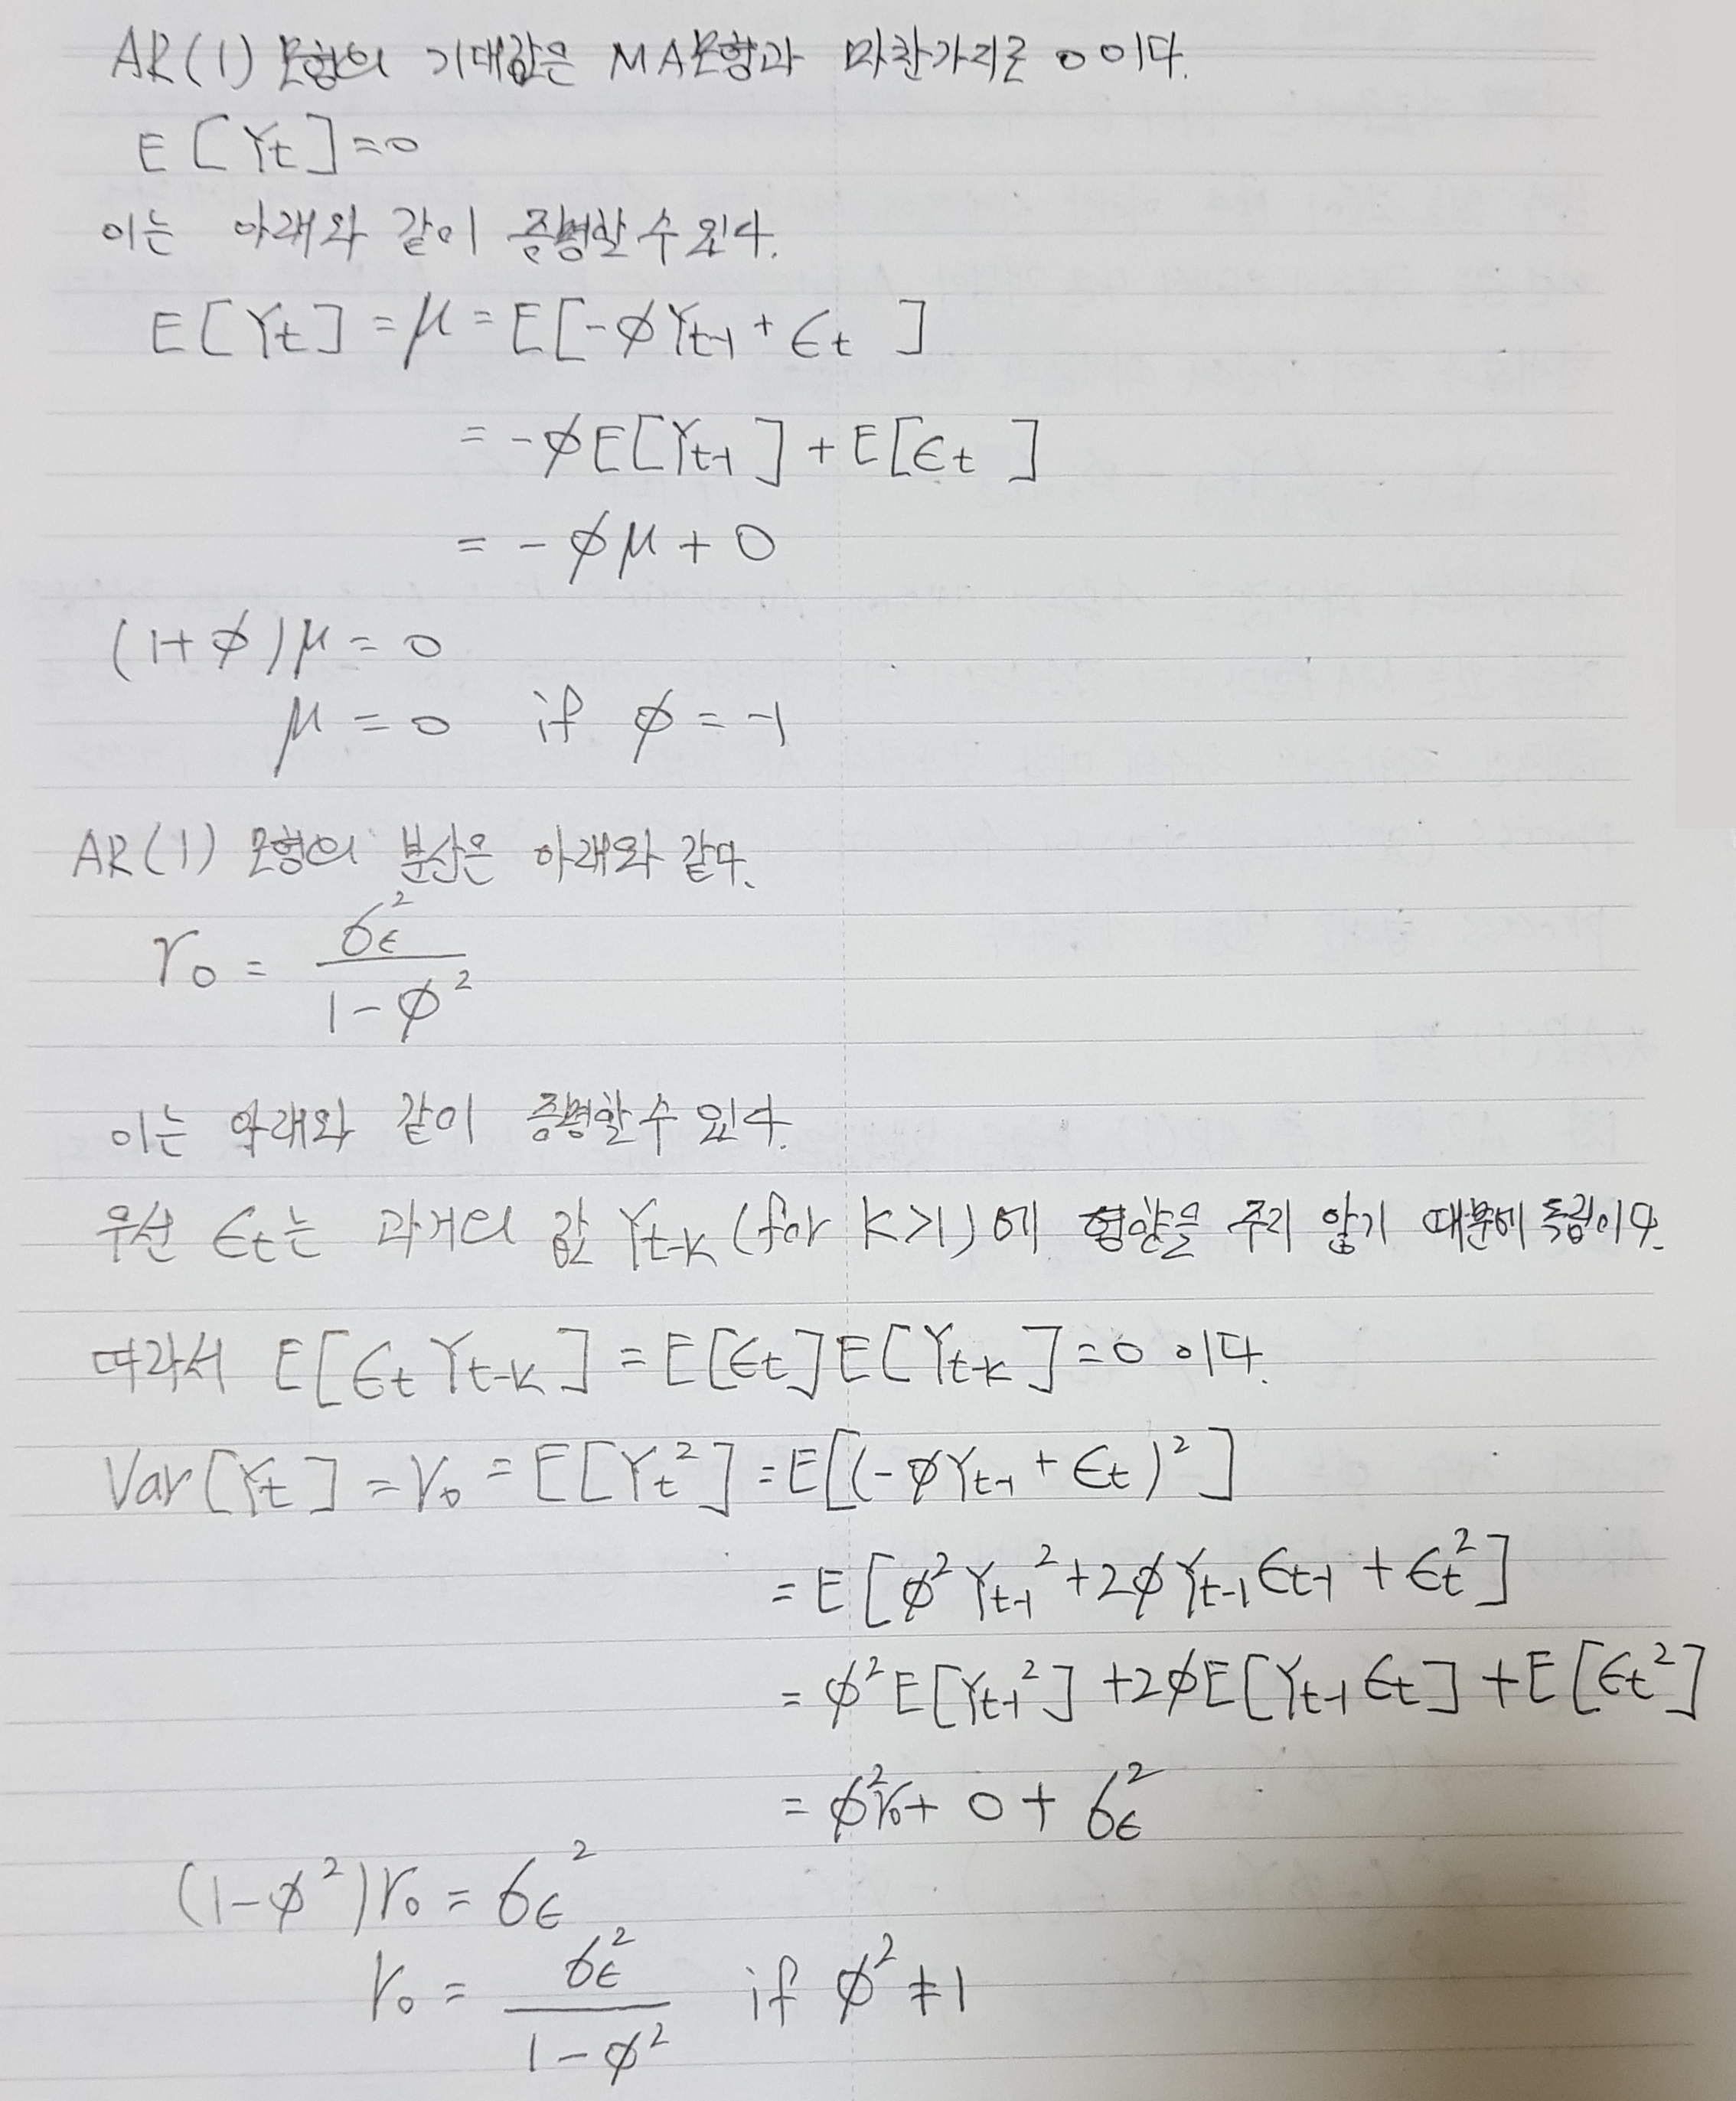 AR(1) 모형의 기대값은 MA모형과 마찬가지로 0이다.
E[Yt]=0
이는 아래와 같이 증명할 수 있다.
E[Yt] = μ = E[-ϕYt-1 + ϵt ]
= -ϕE[Yt-1] + E[ϵt ]
= -ϕμ + 0
(1+ϕ)μ = 0
μ = 0 if ϕ = -1
AR(1) 모형의 분산은 아래와 같다.
γ0 = σϵ² / 1-ϕ²
이는 아래와 같이 증명할 수 있다.
우선 ϵt는 과거의 값 Yt-k (for k>1)에 영향을 주지 않기 때문에 독립이다.
따라서 E[ϵt Yt-k] = E[ϵt]E[Yt-k] = 0 이다.
Var[Yt] = γ0 = E[Yt²] = E[(-ϕYt-1 + ϵt)²]
= E[ϕ²Yt-1² + 2ϕYt-1ϵt-1 + ϵt²]
= ϕ²E[Yt-1²] + 2ϕE[Yt-1 ϵt] + E[ϵt²]
= ϕ²γ0 + 0 + σϵ²
(1-ϕ²)γ0 = σϵ²
γ0 = σϵ² / 1-ϕ² if ϕ² ≠ 1